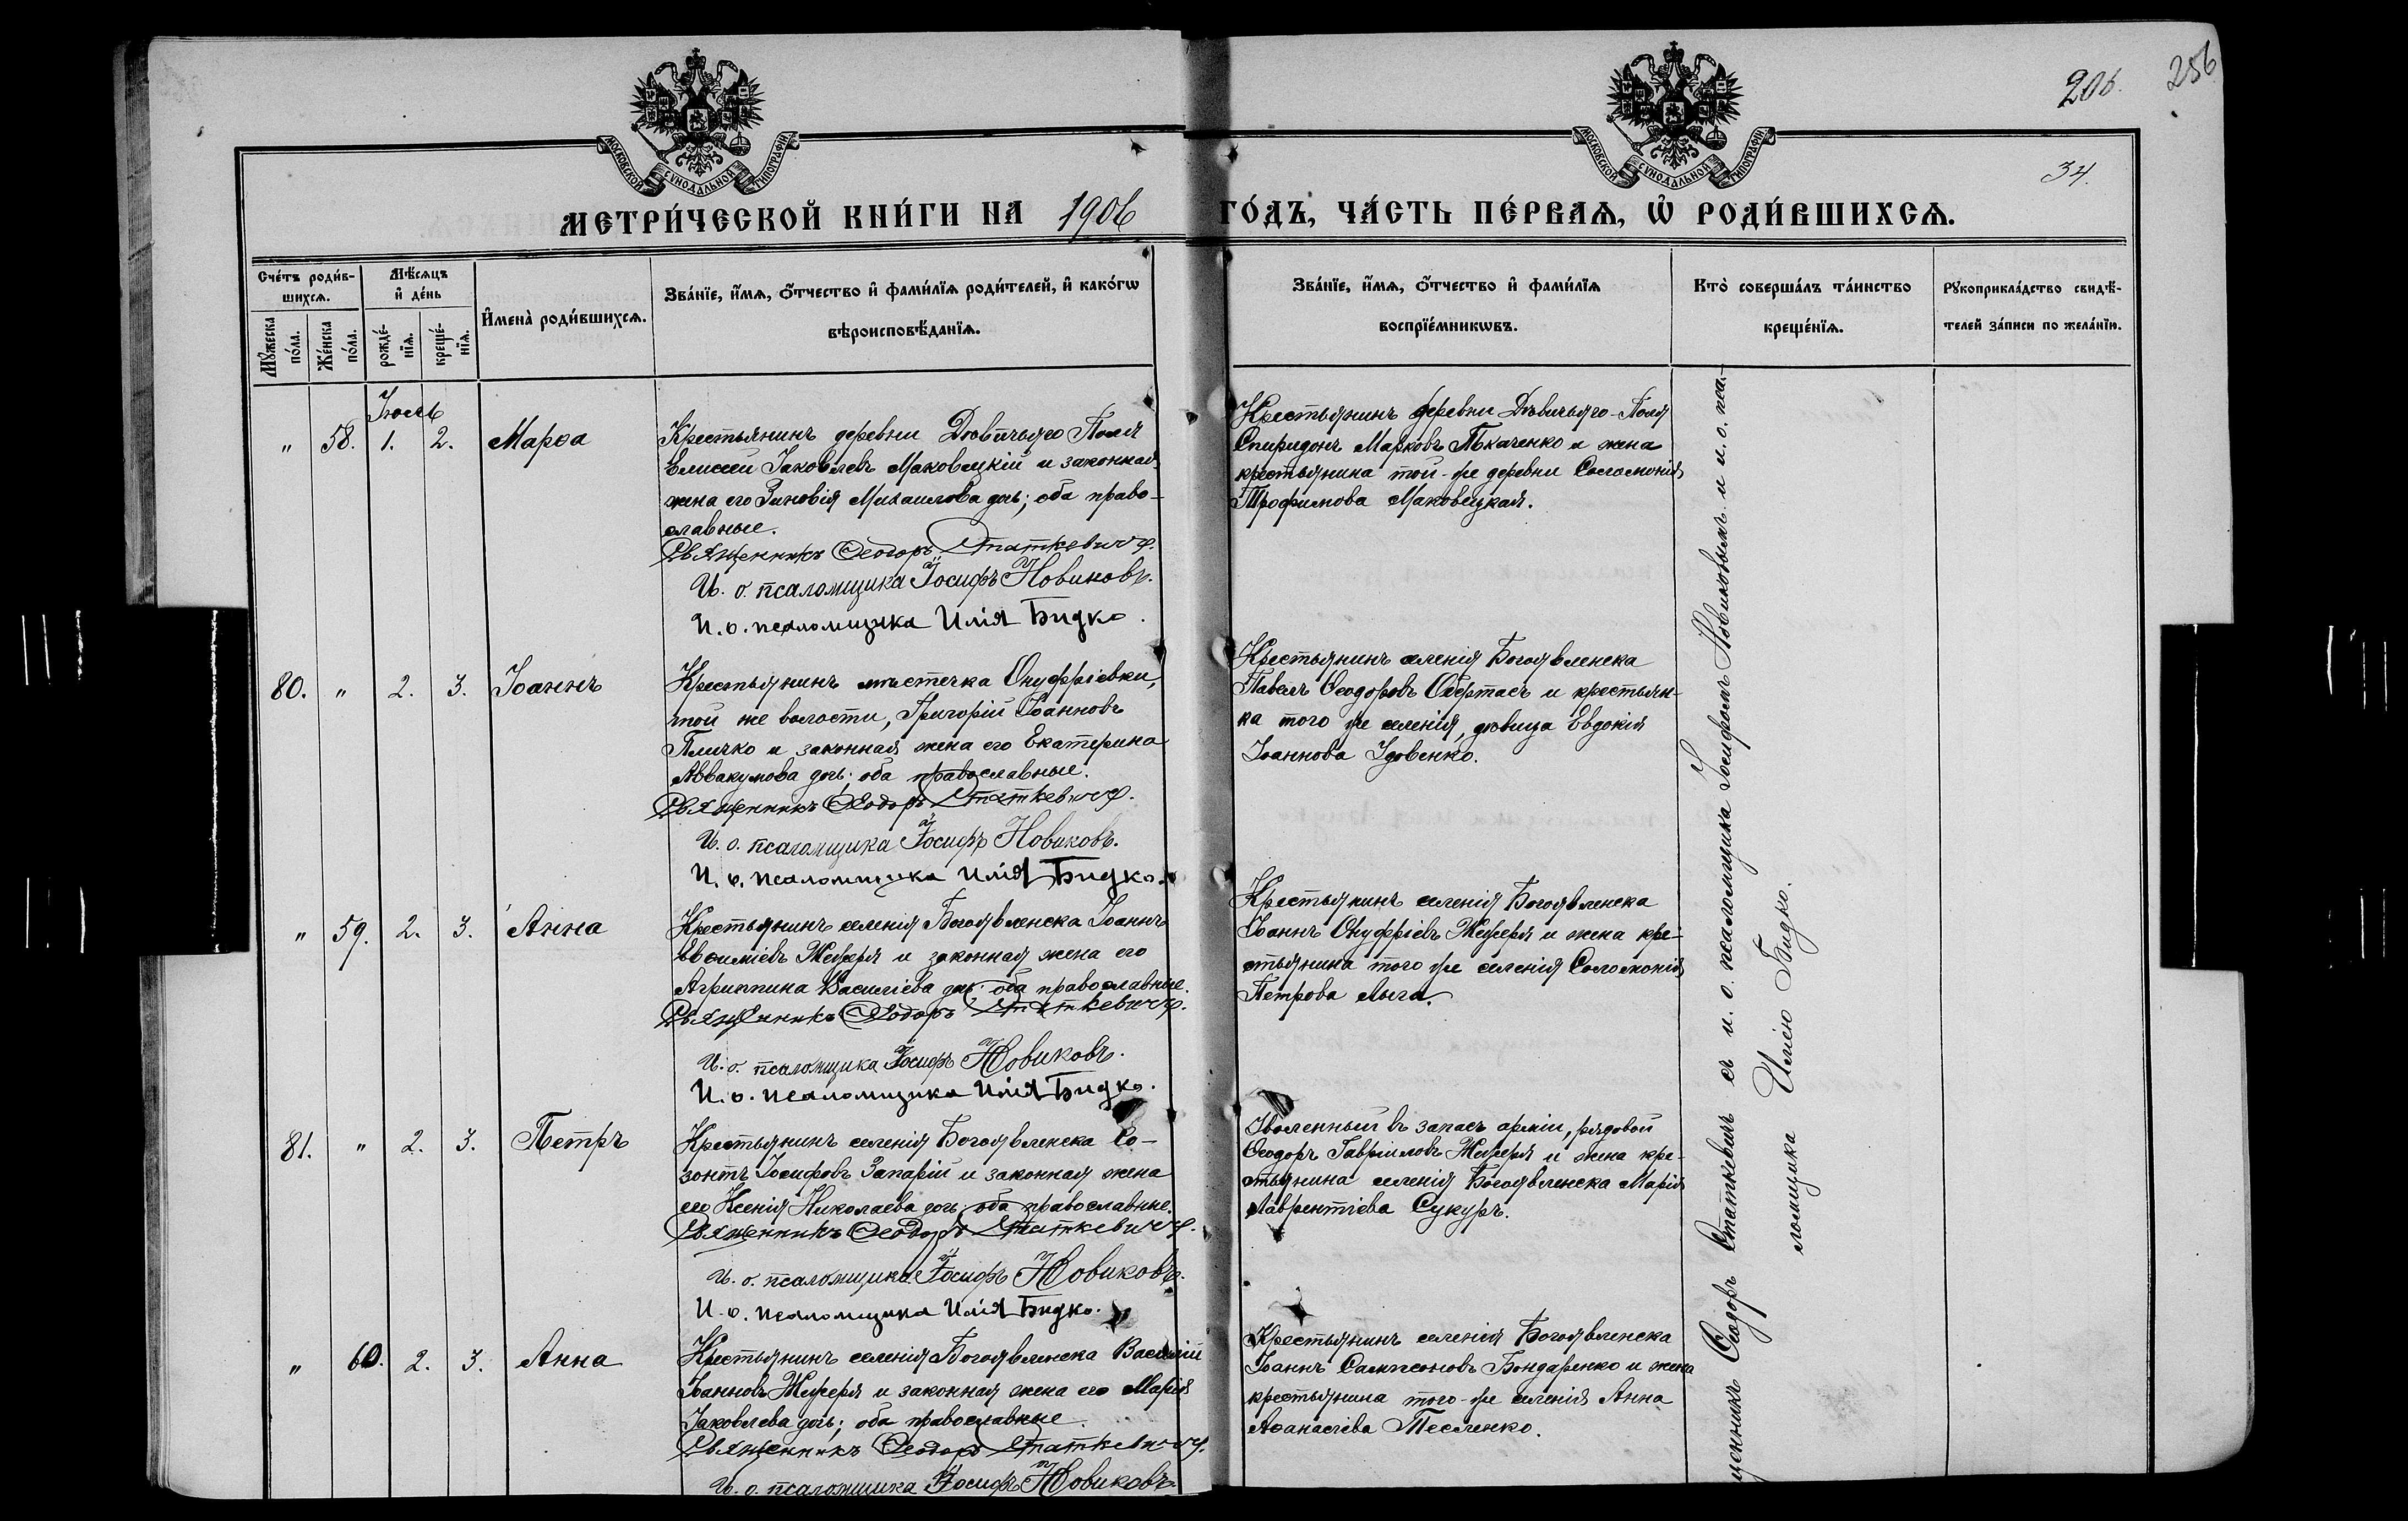 206. 256
34.
МОСКОВСКОЙ СѴНОДАЛЬНОЙ ТИПОГРАФІИ
МОСКОВСКОЙ СѴНОДАЛЬНОЙ ТИПОГРАФІИ
МЕТРИ́ЧЕСКОЙ КНИ́ГИ НА 1906 ГО́ДЪ, ЧА́СТЬ ПЕ́РВАѦ, Ѡ҆ РОДИ́ВШИХСѦ.
Сче́тъ роди́в-
шихсѧ.
Мꙋ́жеска по́ла.
Же́нска по́ла.
Мѣ́сѧцъ и҆ де́нь
рожде́-нїѧ.
креще́-нїѧ.
И҆мена̀ роди́вшихсѧ.
Зва́нїе, и҆́мѧ, ѻ҆́тчество и҆ фами́лїѧ роди́телей, и҆ како́гѡ
вѣроисповѣ́данїѧ.
Зва́нїе, и҆́мѧ, ѻ҆́тчество и҆ фами́лїѧ
воспрїе́мникѡвъ.
Кто̀ соверша́лъ та́инство
креще́нїѧ.
Рꙋкоприкла́дство свидѣ́-
телей за́писи по жела́нїю.
Іюль
" 58. 1. 2. Марѳа
Крестьянинъ деревни Дѣвичьяго Поля
Елисей Іаковлевъ Маковецкій и законная
жена его Зиновія Михаилова дочь; оба право-
славные.
Священникъ Ѳеодоръ Статкевичъ.
И. о. псаломщика Іосифъ Новиковъ.
И. о. псаломщика Илія Бидко.
Крестьянинъ деревни Дѣвичьяго-Поля
Спиридонъ Марковъ Ткаченко и жена
крестьянина той-же деревни Соломонія
Трофимова Маковецкая.
80. " 2. 3. Іоаннъ
Крестьянинъ мѣстечка Онуфріевки,
той же волости, Григорій Іоанновъ
Пличко и законная жена его Екатерина
Аввакумова дочь; оба православные.
Священникъ Ѳеодоръ Статкевичъ.
И. о. псаломщика Іосифъ Новиковъ.
И. о. псаломщика Илія Бидко.
Крестьянинъ селенія Богоявленска
Павелъ Ѳеодоровъ Обертасъ и крестьян-
ка того же селенія, дѣвица Евдокія
Іоаннова Удовенко.
" 59. 2. 3. Анна
Крестьянинъ селенія Богоявленска Іоаннъ
Евѳиміевъ Жеферя и законная жена его
Агриппина Василіева дочь; оба православные.
Священникъ Ѳеодоръ Статкевичъ.
И. о. псаломщика Іосифъ Новиковъ.
И. о. псаломщика Илія Бидко.
Крестьянинъ селенія Богоявленска
Іоаннъ Онуфріевъ Жеферя и жена кре-
стьянина того же селенія Соломонія
Петрова Лыга.
81. " 2. 3. Петръ
Крестьянинъ селенія Богоявленска Со-
зонтъ Іосифовъ Запарій и законная жена
его Ксенія Николаева дочь; оба православные.
Священникъ Ѳеодоръ Статкевичъ.
И. о. псаломщика Іосифъ Новиковъ.
И. о. псаломщика Илія Бидко.
Уволенный въ запасъ арміи, рядовой
Ѳеодоръ Гавріиловъ Жеферя и жена кре-
стьянина селенія Богоявленска Марія
Лаврентіева Сукуръ.
" 60. 2. 3. Анна
Крестьянинъ селенія Богоявленска Василій
Іоанновъ Жеферя и законная жена его Марія
Іаковлева дочь; оба православные.
Священникъ Ѳеодоръ Статкевичъ.
И. о. псаломщика Іосифъ Новиковъ
Крестьянинъ селенія Богоявленска
Іоаннъ Сампсоновъ Бондаренко и жена
крестьянина того-же селенія Анна
Аѳанасіева Тесленко.
щенникъ Ѳеодоръ Статкевичъ съ и. о. псаломщика Іосифомъ Новиковымъ и и. о. пса-
ломщика Иліею Бидко.